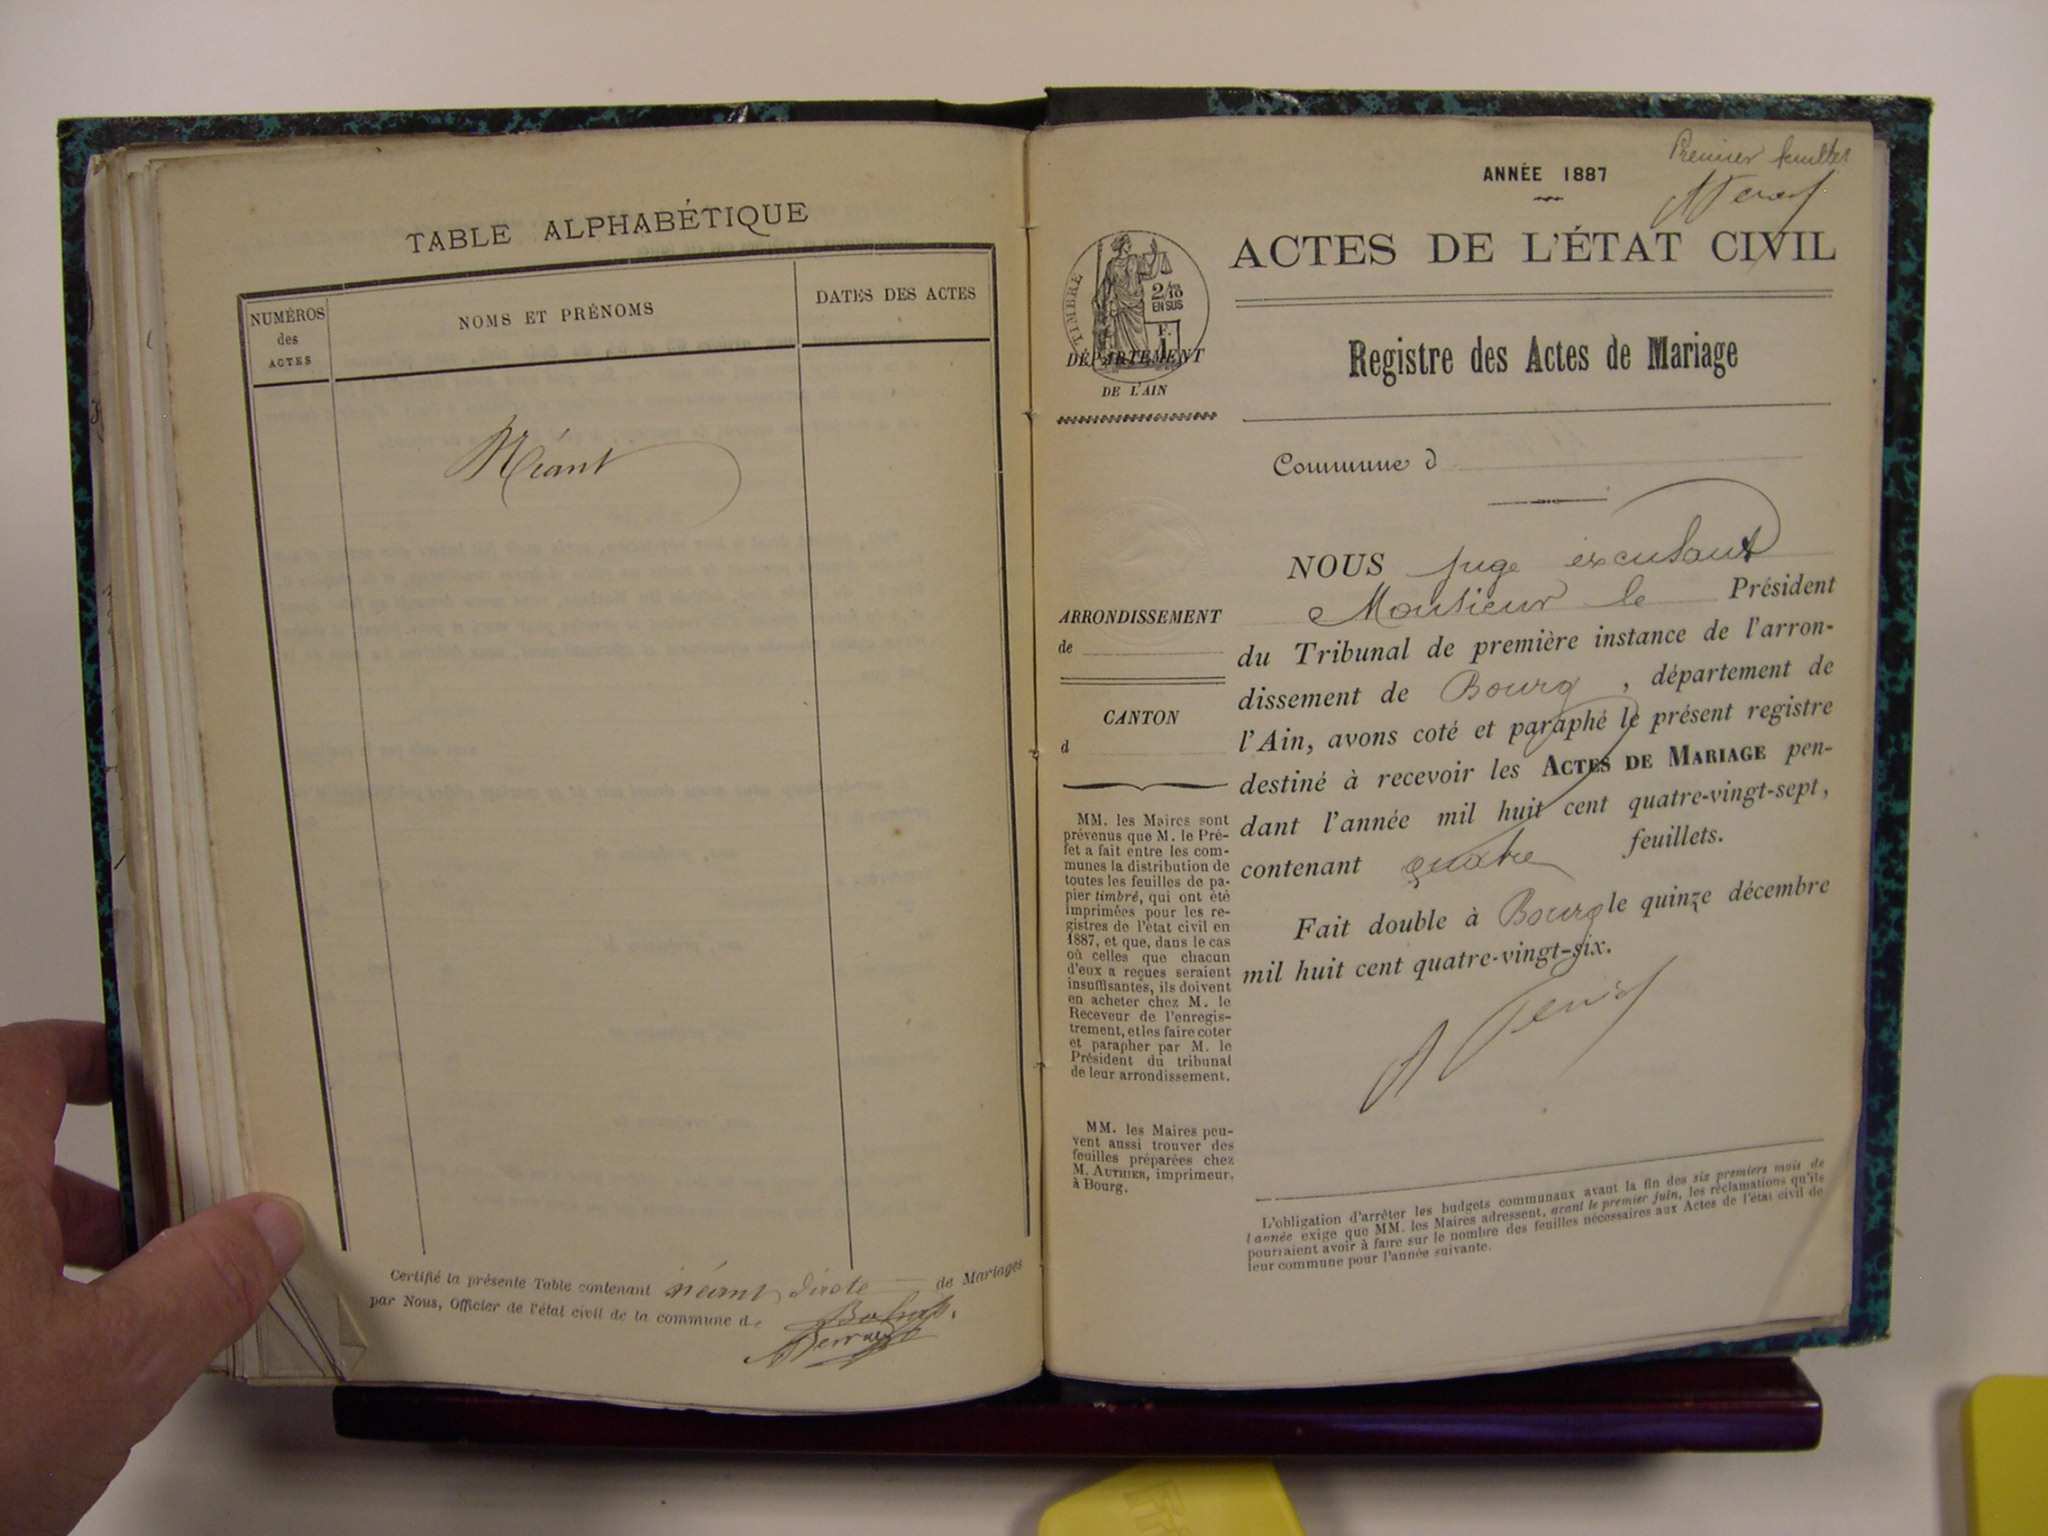 TABLE ALPHABÉTIQUE
NUMÉROS
des
ACTES
NOMS ET PRÉNOMS
DATES DES ACTES
Néant
Certifié la présente Table contenant néant de Mariages
par Nous, Officier de l'état civil de la commune de
Premier feuillet
ANNÉE 1887
ACTES DE L'ÉTAT CIVIL
TIMBRE
2/10
EN SUS
F.
1
DÉPARTEMENT
DE L'AIN
Registre des Actes de Mariage
Commune d
ARRONDISSEMENT
de
CANTON
d
MM. les Maires sont
prévenus que M. le Pré-
fet a fait entre les com-
munes la distribution de
toutes les feuilles de pa-
pier timbré, qui ont été
imprimées pour les re-
gistres de l'état civil en
1887, et que, dans le cas
où celles que chacun
d'eux a reçues seraient
insuffisantes, ils doivent
en acheter chez M. le
Receveur de l'enregis-
trement, et les faire coter
et parapher par M. le
Président du tribunal
de leur arrondissement.
MM. les Maires peu-
vent aussi trouver des
feuilles préparées chez
M. AUTHIER, imprimeur,
à Bourg.
NOUS juge excusant
Monsieur le Président
du Tribunal de première instance de l'arron-
dissement de Bourg, département de
l'Ain, avons coté et paraphé le présent registre
destiné à recevoir les ACTES DE MARIAGE pen-
dant l'année mil huit cent quatre-vingt-sept,
contenant quatre feuillets.
Fait double à Bourg le quinze décembre
mil huit cent quatre-vingt-six.
L'obligation d'arrêter les budgets communaux avant la fin des six premiers mois de
l'année exige que MM. les Maires adressent, avant le premier juin, les réclamations qu'ils
pourraient avoir à faire sur le nombre des feuilles nécessaires aux Actes de l'état civil de
leur commune pour l'année suivante.